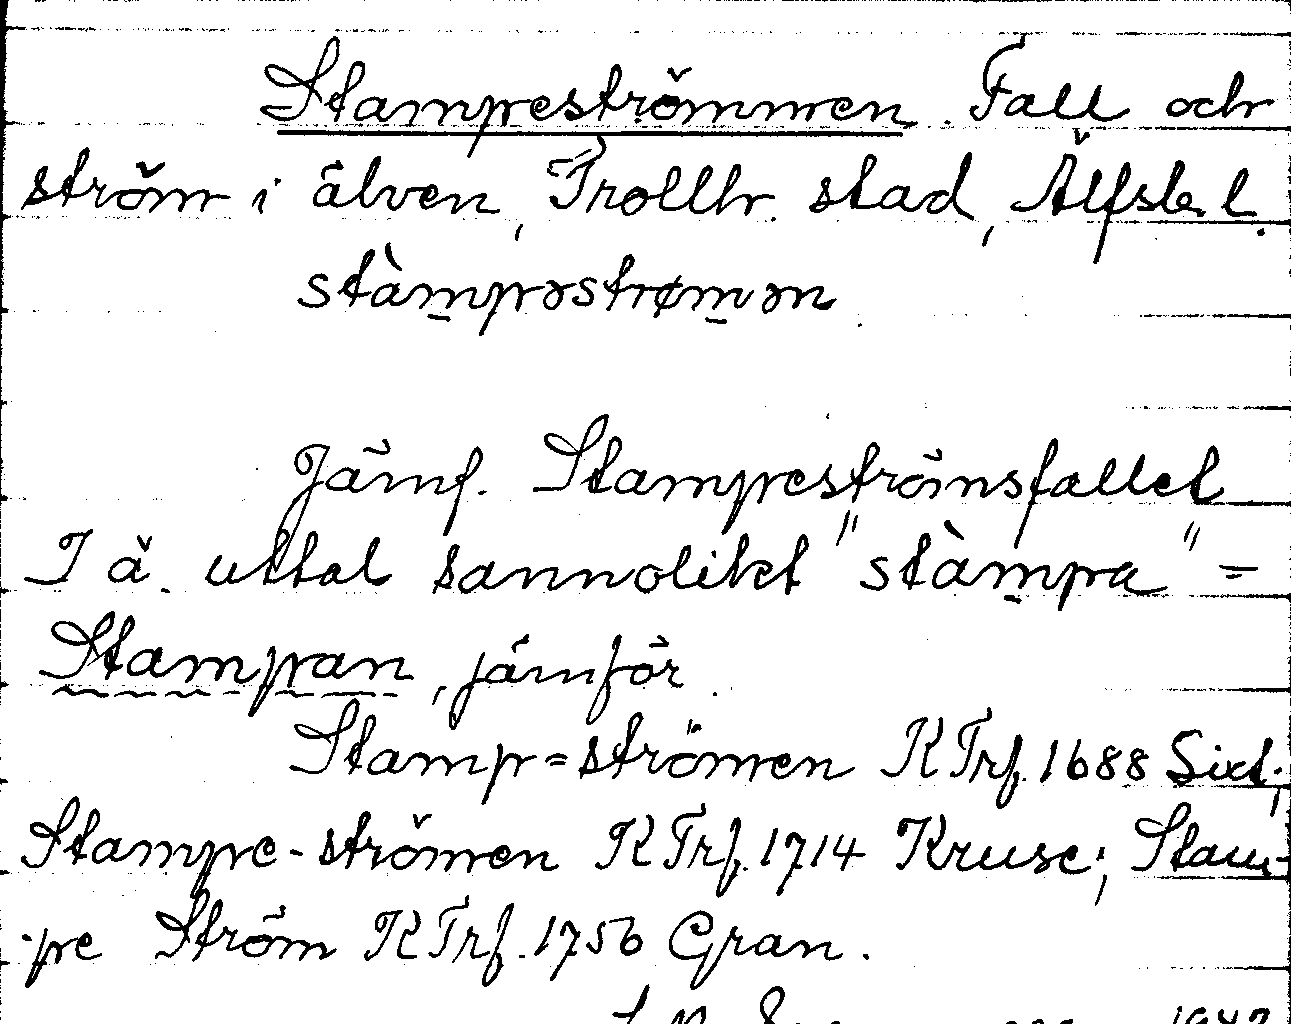 Stampeströmmen. Fall och
ström i älven, Trollh. stad, Älfsb. l.
stàm̱pəstrøm̱ən
Jämf. Stampeströmsfallet
I ä. uttal sannolikt "stàm̱pa" =
Stampan, jämför
Stamp=strömen KTrf. 1688 Sixt;
Stampe-strömen KTrf. 1714 Kruse; Stam-
pe Ström KTrf. 1756 Gran.